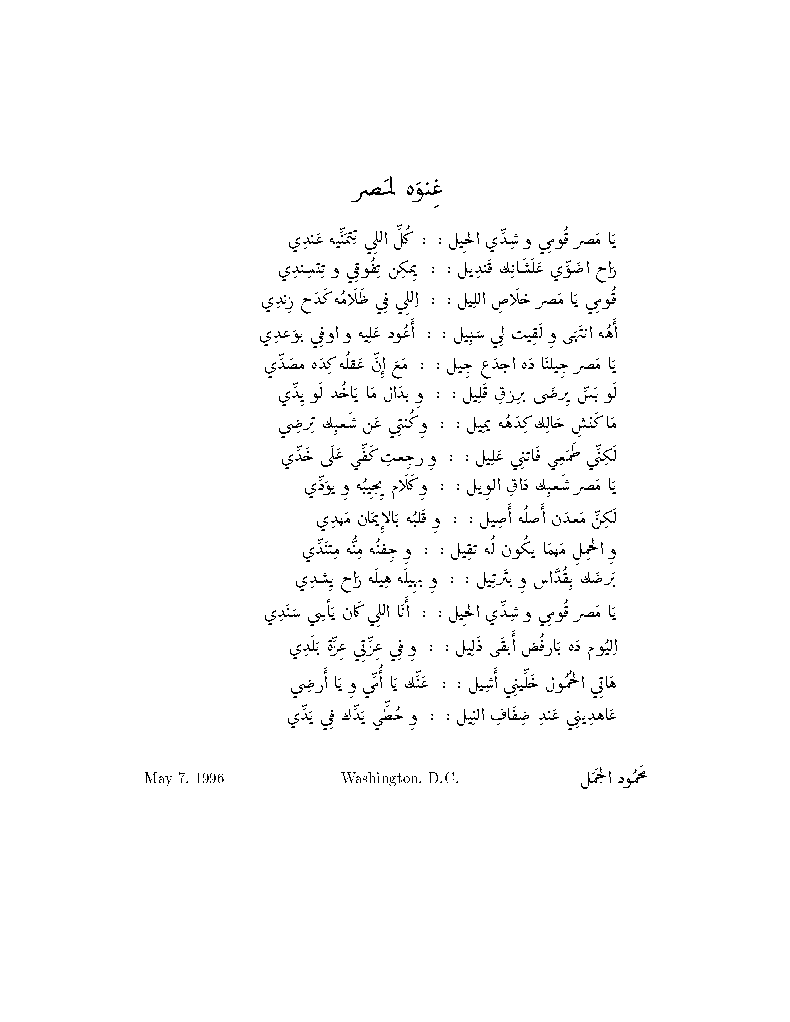 غِنوَه لمَصر
يَا مَصر قُومِي و شِدِّي الحِيل : : كُلِّ اللِي تِتمَنِّيه عَندِي
رَاح اضَوِّي عَلَشَانِك قَندِيل : : يِمكِن تِفُوقِي و تِتسِندِي
قُومِي يَا مَصر خلَاصِ اللِيل : : اِللِي فِي ظَلَامُه كَدَح زِندِي
أَهُه انتَهَى و لَقِيت لِي سَبِيل : : أَعُود عَلِيه و اوفِي بوَعدِي
يَا مَصر جِيلنَا دَه اجدَع جِيل : : مَعَ إِنِّ عَقلُه كِدَه مصَدِّي
لَو بَسِّ يِرضَى بِرِزقِ قَلِيل : : و بدَال مَا يَاخُد لَو يِدِّي
مَا كَنشِ حَالِك كِدَهُه يمِيل : : و كُنتِي عَن شَعبِك تِرضِي
لَكِنِّي طَمَعِي فَاتنِي عَلِيل : : و رجِعتِ كَفِّي عَلَى خَدِّي
يَا مَصر شَعبِك دَاقِ الوِيل : : و كَلَام يِجِيبُه و يوَدِّي
لَكِنِّ مَعدَن أَصلُه أَصِيل : : و قَلبُه بَالإِيمَان مَهدِي
وِ الحِملِ مَهمَا يكُون لُه تقِيل : : و جِفنُه مِنُّه مِتنَدِّي
بَرضَك بِقُدَّاس و بتَرتِيل : : و بهِيلَه هِيلَه رَاح يِشدِي
يَا مَصر قُومِي و شِدِّي الحِيل : : أَنَا اللِي كَان يَأسِي سَنَدِي
اِليُوم دَه بَارفُض أَبقَى ذَلِيل : : و فِي عِزِّتِي عِزِّة بَلَدِي
هَاتِي الحُمُول خَلِّينِي أَشِيل : : عَنِّك يَا أُمِّي و يَا أَرضِي
عَاهدِينِي عَندِ ضِفَافِ النِيل : : و حُطِّي يَدِّك فِي يَدِّي
مَحمُود الجَمَل Washington, D.C. May 7, 1996